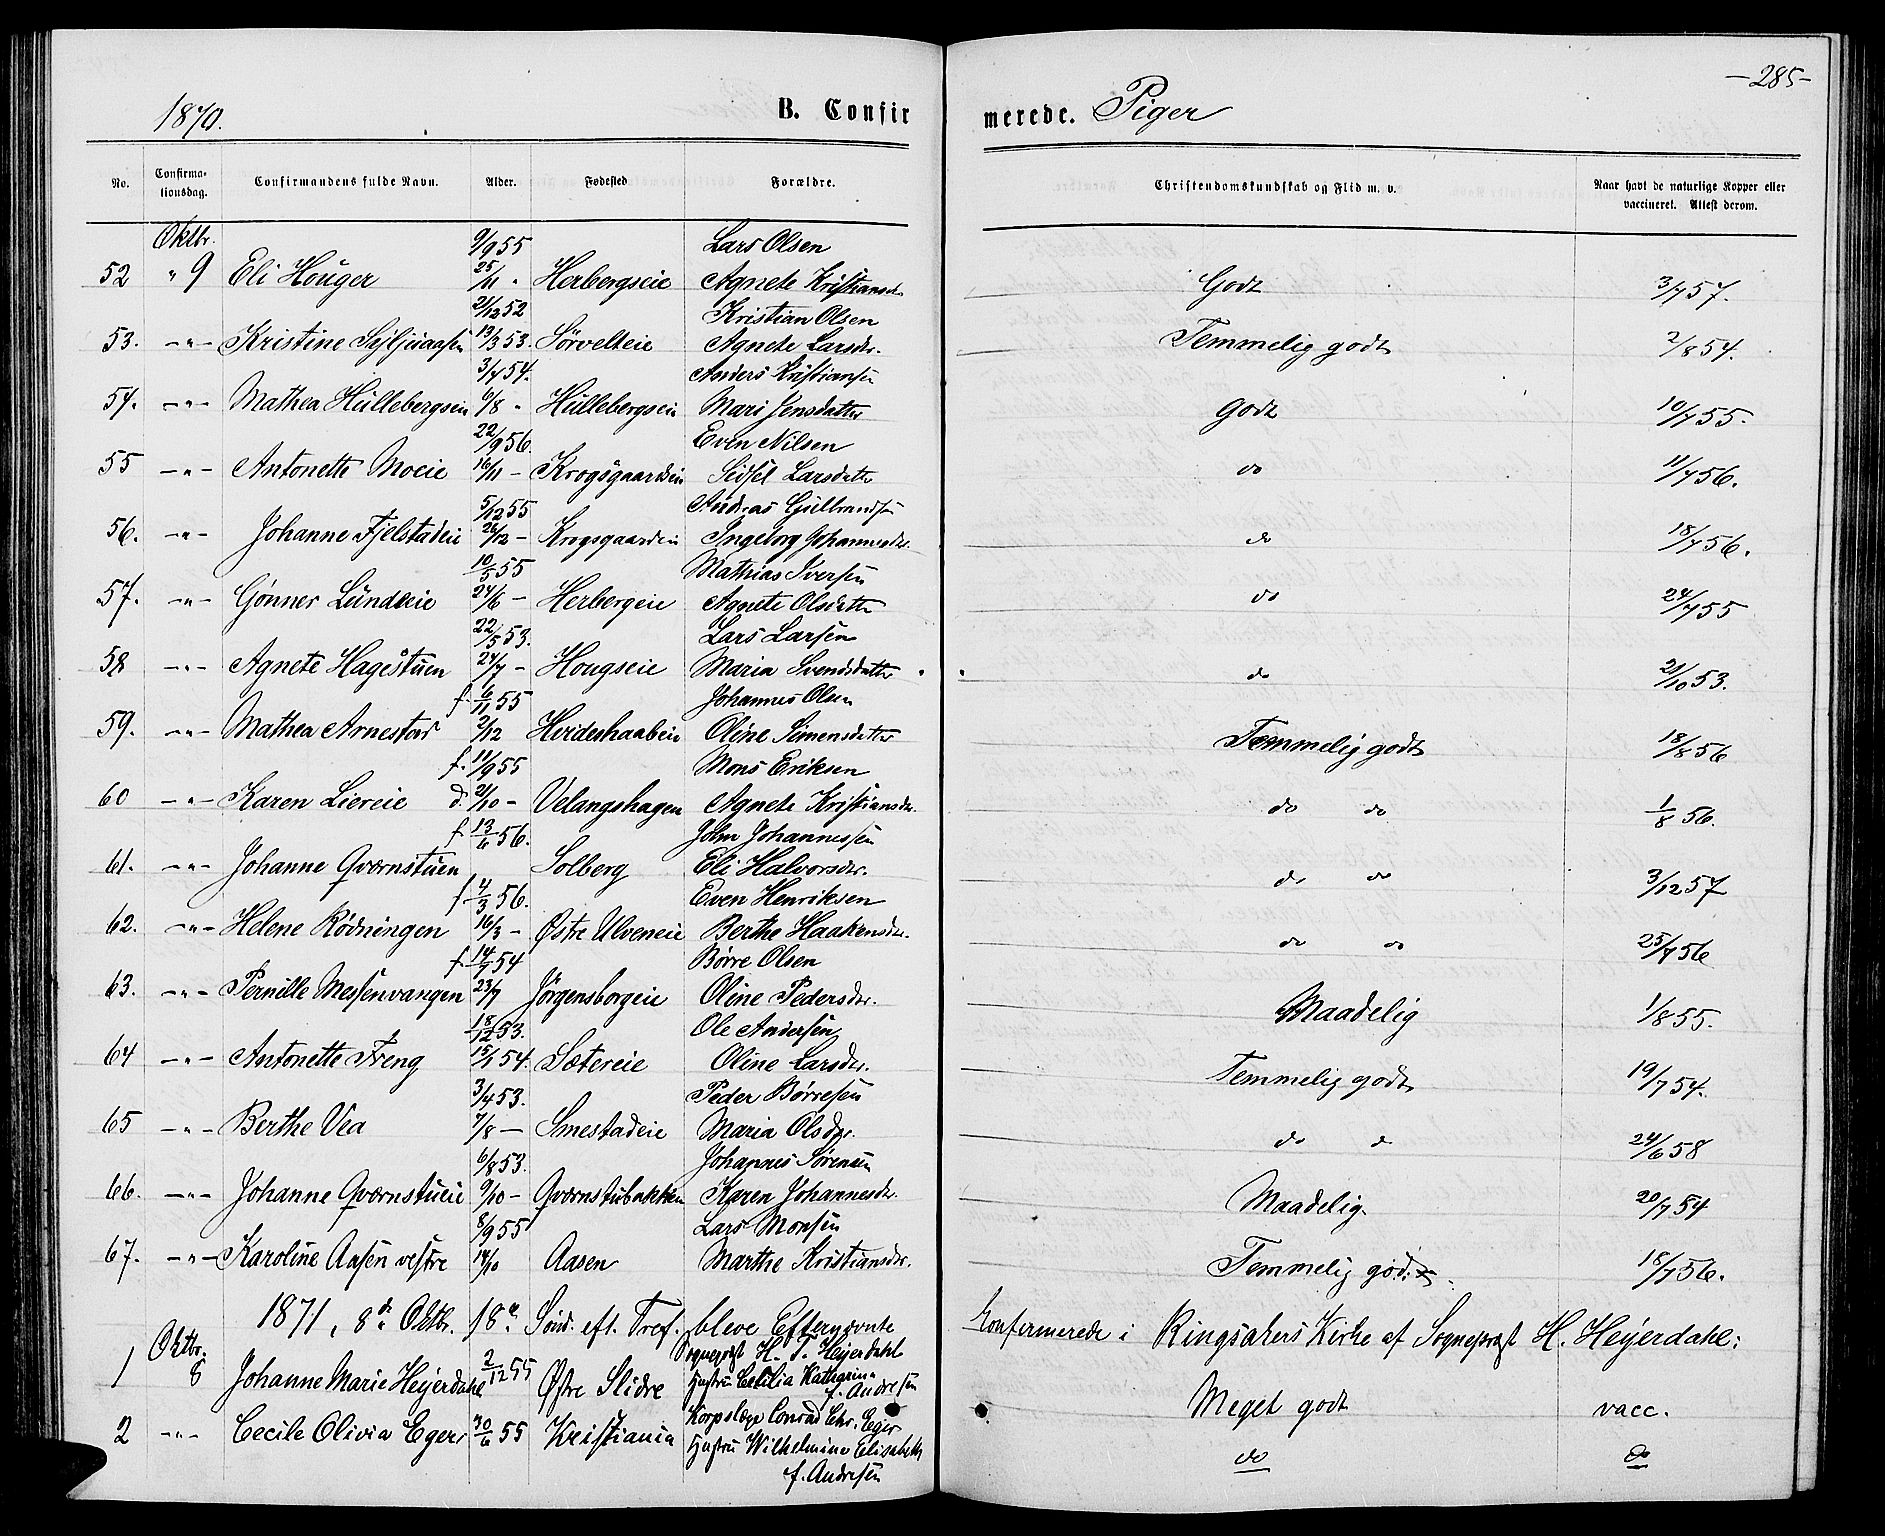 1870. B. Confir merede. Piger -285-
No. Confirma-tionsdag. Confirmandens fulde Navn. Alder. Fødested Forældre. Christendomskundskab og Flid m. v. Naar havt de naturlige Kopper eller vaccineret. Attest derom.
Oktbr. 9/9 55 Lars Olsen
52 " 9 Eli Houger 25/11 " Herbergseie Agnete Kristiansd. Godt 3/7 57.
21/12 52 Kristian Olsen
53. -"- Kristine 13/3 53. Sörvelteie Agnete Larsdtr. Temmelig godt 2/8 54.
3/7 54. Anders Kristiansen
54. -"- Mathea Hullebergseie 6/8 " Hullebergseie Mari Jensdatter Godt 10/7 55.
22/9 56. Even Nilsen
55 -"- Antonette Moeie 16/11 - Krogsgaardseie Sidsel Larsdatter do 11/7 56.
5/12 55 Andreas Gulbrandsen
56. -"- Johanne Fjelstadeie 26/12 - Krogsgaardeie Ingeborg Johannesdtr. do 18/7 56.
10/5 55 Mathias Iversen
57. -"- Gönner Lundeie 24/6 - Herbergeie Agnete Olsdatter do 24/7 55
22/5 53. Lars Larsen
58 -"- Agnete Hagestuen 24/7 - Hougseie Maria Svendsdatter do 21/10 53.
f. 6/11 55 Johannes Olsen
59. -"- Mathea Arnestad 2/12 Heideshaabeie Oline Simensdatter Temmelig godt 18/8 56
f. 11/9 55 Mons Eriksen
60 -"- Karen Liereie d. 21/10 - Velangshagen Agnete Kristiansdr. do do 1/8 56.
f. 13/6 56. John Johannessen
61. -"- Johanne Qvernstuen Solberg Eli Halvorsdr. do do 3/12 57
f. 4/3 56. Even Henriksen
62. -"- Helene Rödningen 16/3 - Østre Ulveneie Berthe Haakensdr. do do 25/7 56
f. 14/7 54 Børre Olsen
63. -"- Pernille Messenvangen 23/7 Jörgensborgeie Oline Pedersdr. Maadelig 1/8 55.
18/12 53. Ole Andersen
64 -"- Antonette Freng 15/1 54. Sætereie Oline Larsdr. Temmelig godt 19/7 54.
3/4 53. Peder Børresen
65 -"- Berthe Vea 7/8 - Smestadeie Maria Olsdr. do do 24/6 58
6/8 53. Johannes Sørensen
66. -"- Johanne Qvernstueie 9/10 - Qvernstubakken Karen Johannesdr. Maadelig. 20/7 54
8/9 55 Lars Monsen
67. -"- Karoline Aasen vestre 14/10 Aasen Marthe Kristiansdr. Temmelig godt 18/7 56.
1871, 8de Oktbr. 18e Sönd. eft. Tref. bleve Efternævnte Konfirmerede i Ringsakers Kirke af Sognepræst H. Heyerdahl:
Oktbr. Sognepræst H. T. Heyerdahl
1 8 Johanne Marie Heyerdahl 2/12 55 Østre Slidre Hustru Cecilia Kathrina f. Andresen Meget godt vacc.
Korpslæge Conrad Chr. Eger
2 -"- Cecile Olivia Eger 30/6 55 Kristiania Hustru Wilhelmine Elisabeth do do
f. Andresen